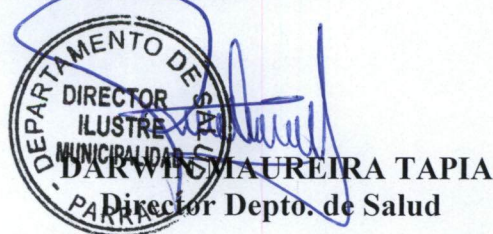 DEPARTAMENTO DE SALUD
DIRECTOR
ILUSTRE
MUNICIPALIDAD
- PARRAL -
DARWIN MAUREIRA TAPIA
Director Depto. de Salud